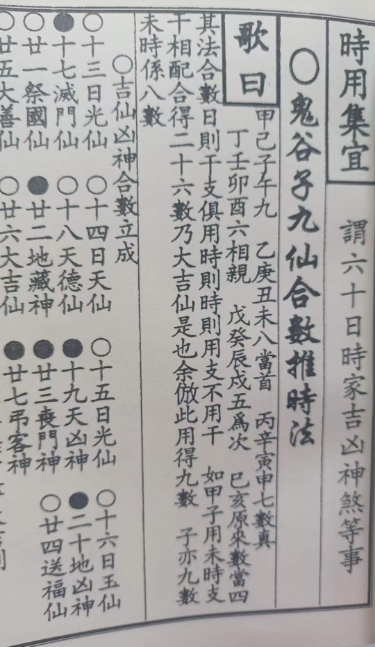 時用集宜 謂六十日時家吉凶神煞等事
〇鬼谷子九仙合數推時法
歌曰 甲己子午九 乙庚丑未八當首 丙辛寅申七數真
丁壬卯酉六相親 戊癸辰戌五為次 巳亥原來數當四
其法合數日則干支俱用時則時則用支不用干 如甲子用未時支
干相配合得二十六數乃大吉仙是也余倣此用得九數 子亦九數
未時係八數
〇吉仙凶神合數立成
〇十三日光仙 〇十四日天仙 〇十五日光仙 〇十六日玉仙
●十七滅門仙 〇十八天德仙 ●十九天凶神 ●二十地凶神
〇廿一祭國仙 ●廿二地藏神 ●廿三喪門神 〇廿四送福仙
〇廿五大善仙 〇廿六大吉仙 ●廿七弔客神